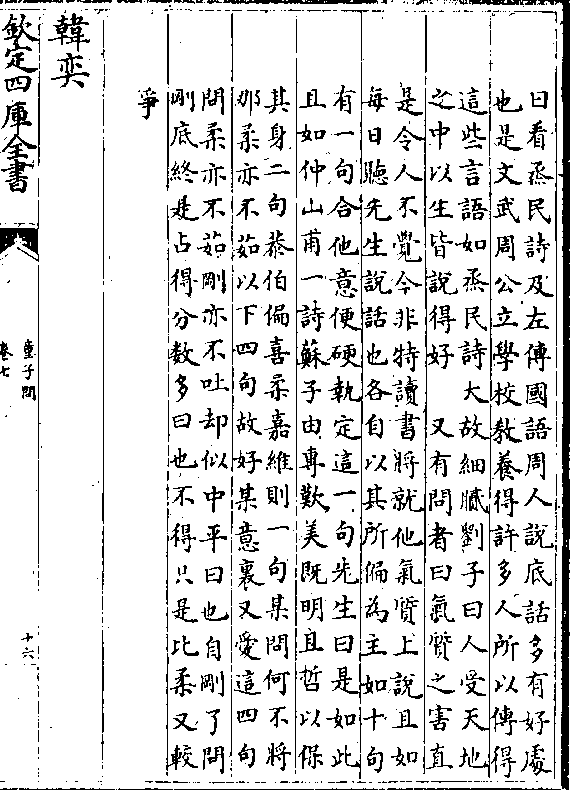 曰看烝民詩及左傳國語周人說底話多有好處
也是文武周公立學校教養得許多人所以傳得
這些言語如烝民詩大故細膩劉子曰人受天地
之中以生皆說得好　又有問者曰氣質之害直
是令人不覺今非特讀書將就他氣質上說且如
每日聽先生說話也各自以其所偏為主如十句
有一句合他意便硬執定這一句先生曰是如此
且如仲山甫一詩蘇子由專歎美既明且哲以保
其身二句恭伯偏喜柔嘉維則一句某問何不將
那柔亦不茹以下四句故好某意裏又愛這四句
問柔亦不茹剛亦不吐却似中平曰也自剛了問
剛底終是占得分數多曰也不得只是比柔又較
爭
韓奕
欽定四庫全書
童子問
卷七
十六